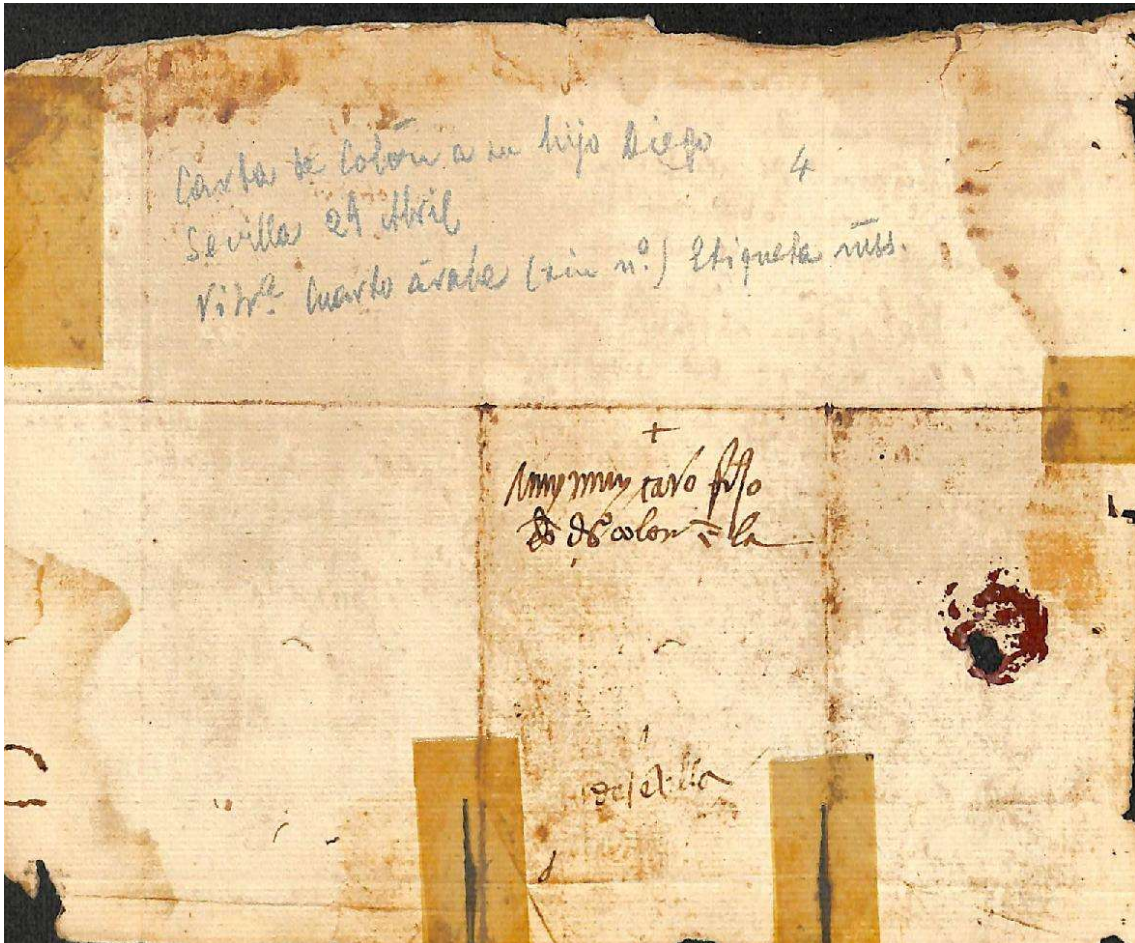 Carta de Colón a su hijo Diego
4
Sevilla 29 Abril
Vitrª Cuarto árabe (sin nº.) Etiqueta mss.
+
muy muy caro fijo
do dgº colon la
de sevilla